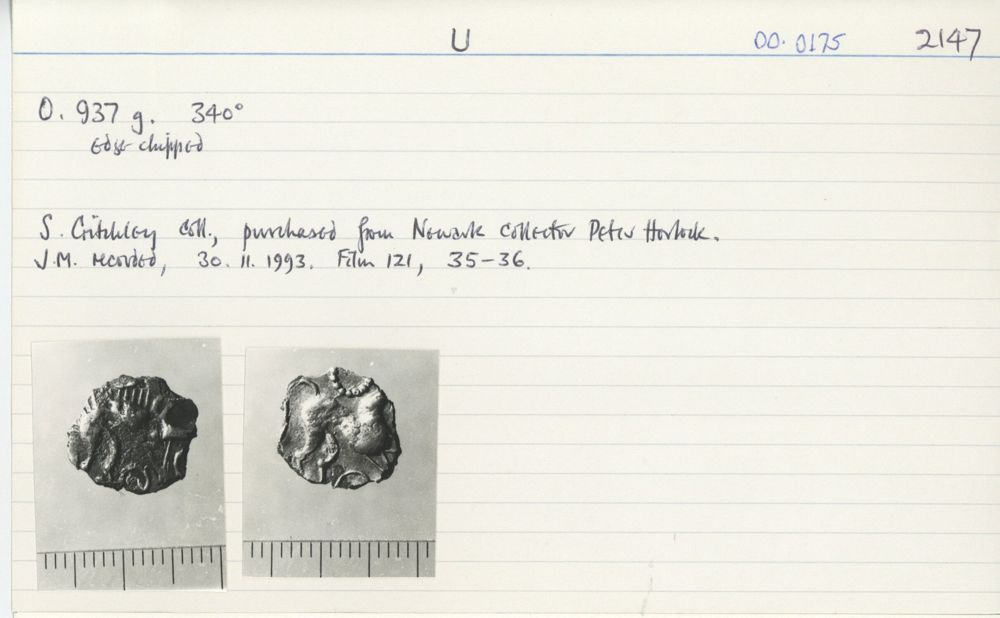 U 00.0175 2147
0.937 g. 340°
Edge chipped
S. Critchley coll., purchased from Newark collector Peter Horlock.
J.M. recorded, 30.11.1993. Film 121, 35-36.